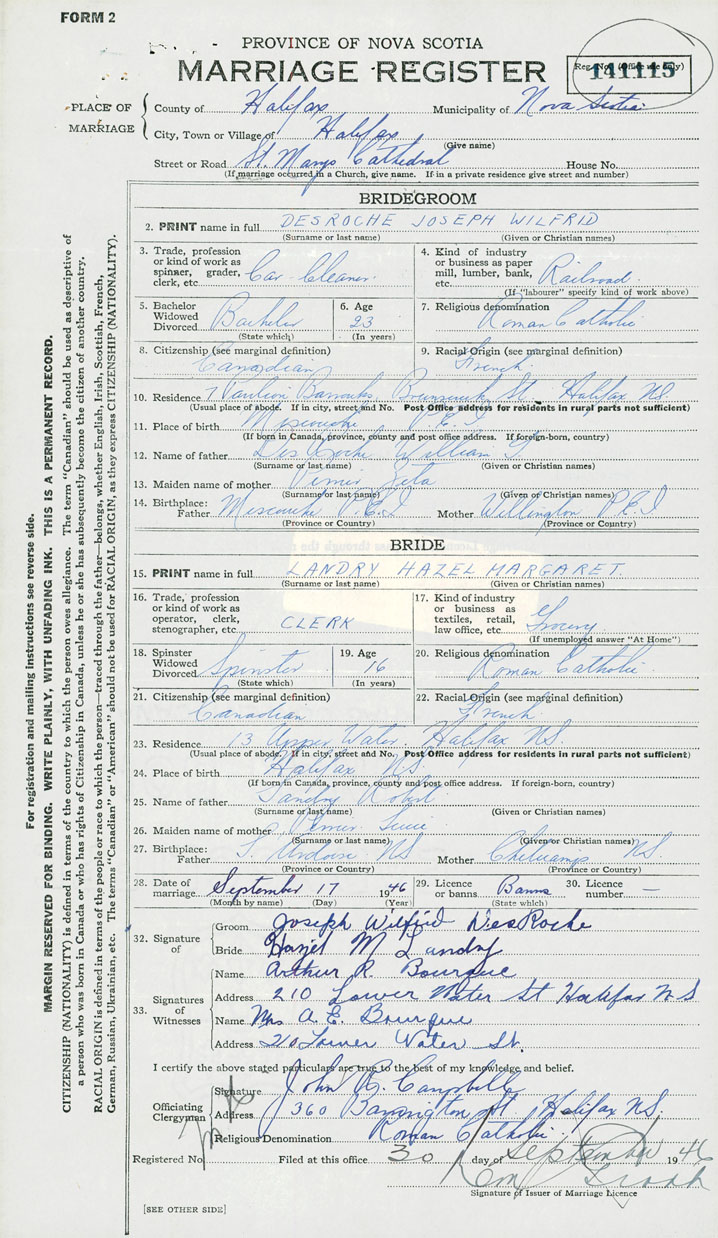 FORM 2
PROVINCE OF NOVA SCOTIA
MARRIAGE REGISTER
Reg. No. (Office use only)
141115
PLACE OF MARRIAGE
County of Halifax Municipality of Nova Scotia
City, Town or Village of Halifax
(Give name)
Street or Road St. Marys Cathedral House No.
(If marriage occurred in a Church, give name. If in a private residence give street and number)
BRIDEGROOM
2. PRINT name in full DESROCHE JOSEPH WILFRID
(Surname or last name) (Given or Christian names)
3. Trade, profession or kind of work as spinner, grader, clerk, etc. Car Cleaner
4. Kind of industry or business as paper mill, lumber, bank, etc. Railroad
(If "labourer" specify kind of work above)
5. Bachelor Widowed Divorced Bachelor
(State which)
6. Age 23
(In years)
7. Religious denomination Roman Catholic
8. Citizenship (see marginal definition) Canadian
9. Racial Origin (see marginal definition) French
10. Residence 7 Barracks Brunswick St. Halifax NS
(Usual place of abode. If in city, street and No. Post Office address for residents in rural parts not sufficient)
11. Place of birth Miscouche P.E.I
(If born in Canada, province, county and post office address. If foreign-born, country)
12. Name of father DesRoche William
(Surname or last name) (Given or Christian names)
13. Maiden name of mother Zita
(Surname or last name) (Given or Christian names)
14. Birthplace: Father Miscouche P.E.I Mother Wellington P.E.I
(Province or Country) (Province or Country)
BRIDE
15. PRINT name in full LANDRY HAZEL MARGARET.
(Surname or last name) (Given or Christian names)
16. Trade, profession or kind of work as operator, clerk, stenographer, etc. CLERK
17. Kind of industry or business as textiles, retail, law office, etc. Grocery
(If unemployed answer "At Home")
18. Spinster Widowed Divorced Spinster
(State which)
19. Age 16
(In years)
20. Religious denomination Roman Catholic
21. Citizenship (see marginal definition) Canadian
22. Racial Origin (see marginal definition) French
23. Residence 13 Upper Water, Halifax N.S.
(Usual place of abode. If in city, street and No. Post Office address for residents in rural parts not sufficient)
24. Place of birth Halifax N.S.
(If born in Canada, province, county and post office address. If foreign-born, country)
25. Name of father Landry Robert
(Surname or last name) (Given or Christian names)
26. Maiden name of mother
(Surname or last name) (Given or Christian names)
27. Birthplace: Father L'Ardoise NS Mother N.S.
(Province or Country) (Province or Country)
28. Date of marriage September 17 1946
(Month by name) (Day) (Year)
29. Licence or banns Banns
(State which)
30. Licence number —
32. Signature of
Groom Joseph Wilfrid DesRoche
Bride Hazel M Landry
33. Signatures of Witnesses
Name Arthur R. Bourque
Address 210 Lower Water St Halifax N S
Name Mrs A. E. Bourque
Address 210 Lower Water St.
I certify the above stated particulars are true to the best of my knowledge and belief.
Officiating Clergyman
Signature John R. Campbell
Address 360 Barrington St, Halifax N.S.
Religious Denomination Roman Catholic
Registered No. Filed at this office 30 day of September 1946
Signature of Issuer of Marriage Licence
[SEE OTHER SIDE]
For registration and mailing instructions see reverse side.
MARGIN RESERVED FOR BINDING. WRITE PLAINLY, WITH UNFADING INK. THIS IS A PERMANENT RECORD.
CITIZENSHIP (NATIONALITY) is defined in terms of the country to which the person owes allegiance. The term "Canadian" should be used as descriptive of
a person who was born in Canada or who has rights of Citizenship in Canada, unless he or she has subsequently become the citizen of another country.
RACIAL ORIGIN is defined in terms of the people or race to which the person—traced through the father—belongs, whether English, Irish, Scottish, French,
German, Russian, Ukrainian, etc. The terms "Canadian" or "American" should not be used for RACIAL ORIGIN, as they express CITIZENSHIP (NATIONALITY).